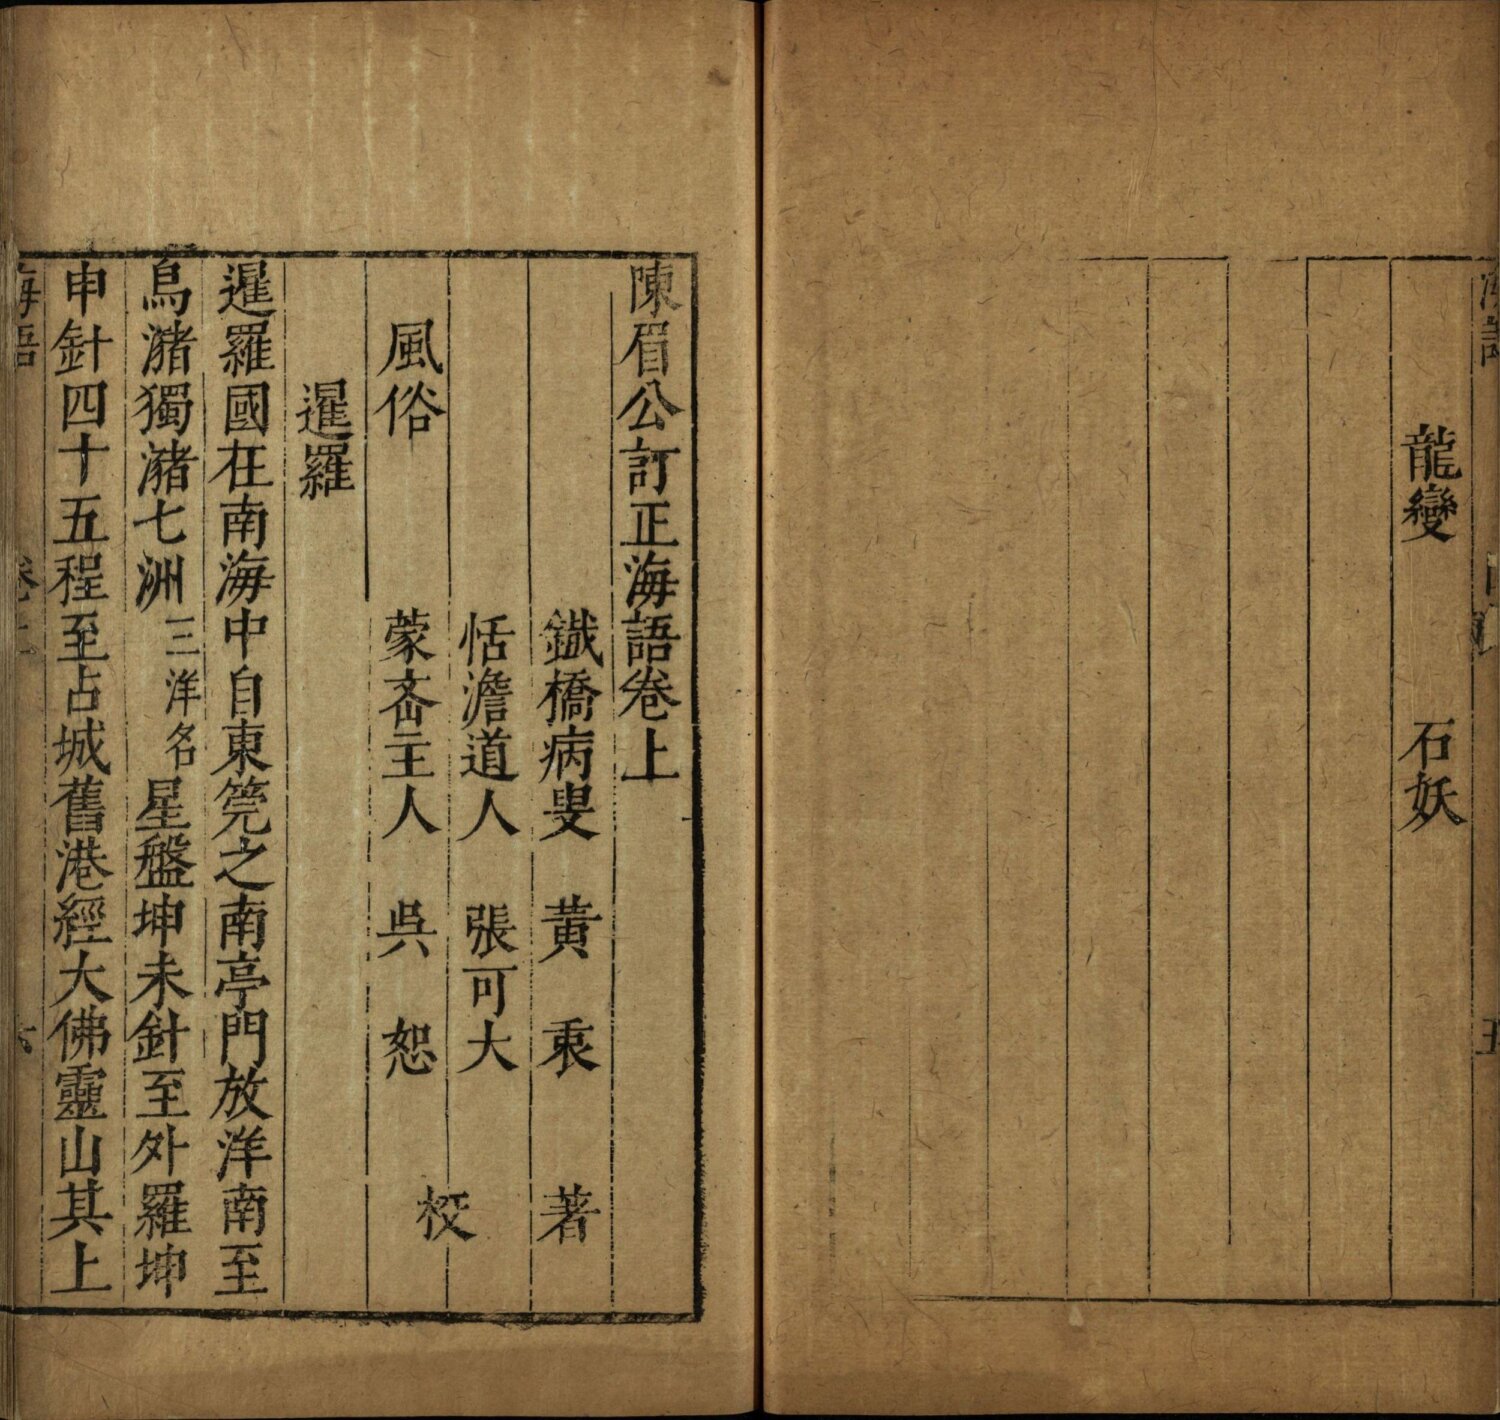 龍變 石妖
陳眉公訂正海語卷上
鐵橋病叟 黃衷 著
恬澹道人 張可大
蒙斋主人 吳恕 校
風俗
暹羅
暹羅國在南海中自東筦之南亭門放洋南至
烏瀦獨瀦七洲三洋名星盤坤未針至外羅坤
申針四十五程至占城舊港經大佛靈山其上